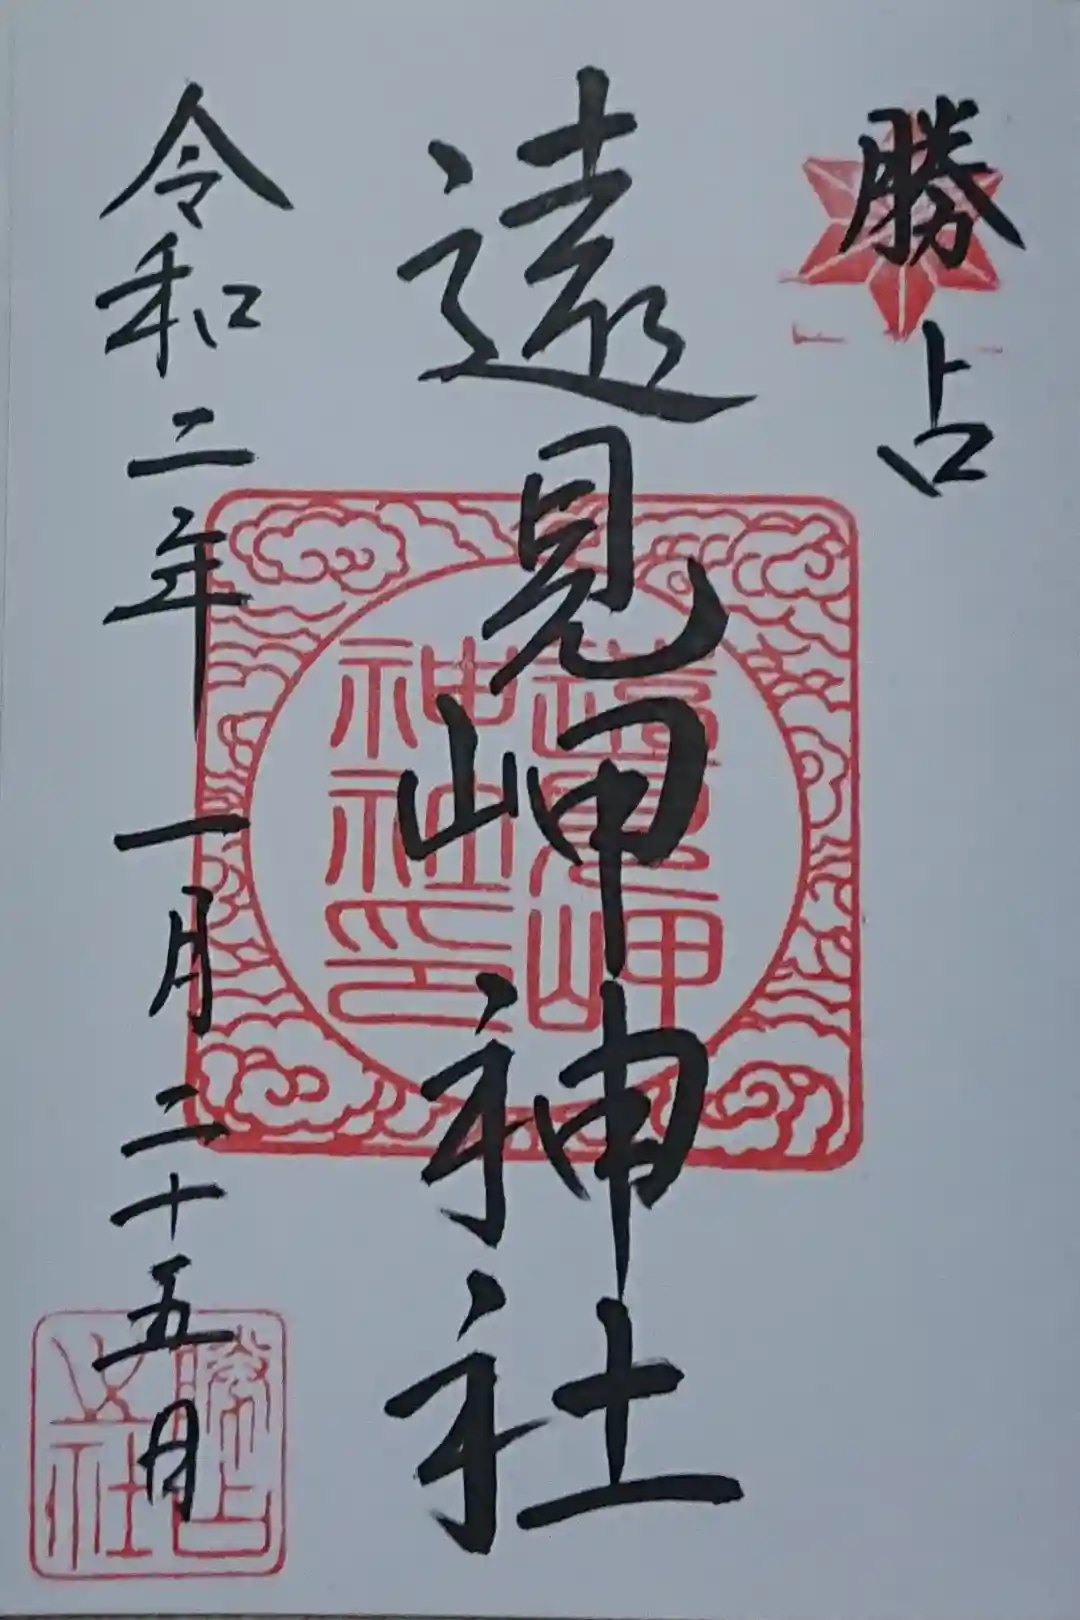 勝占
遠見岬神社
令和二年一月二十五日
遠見岬
神社印